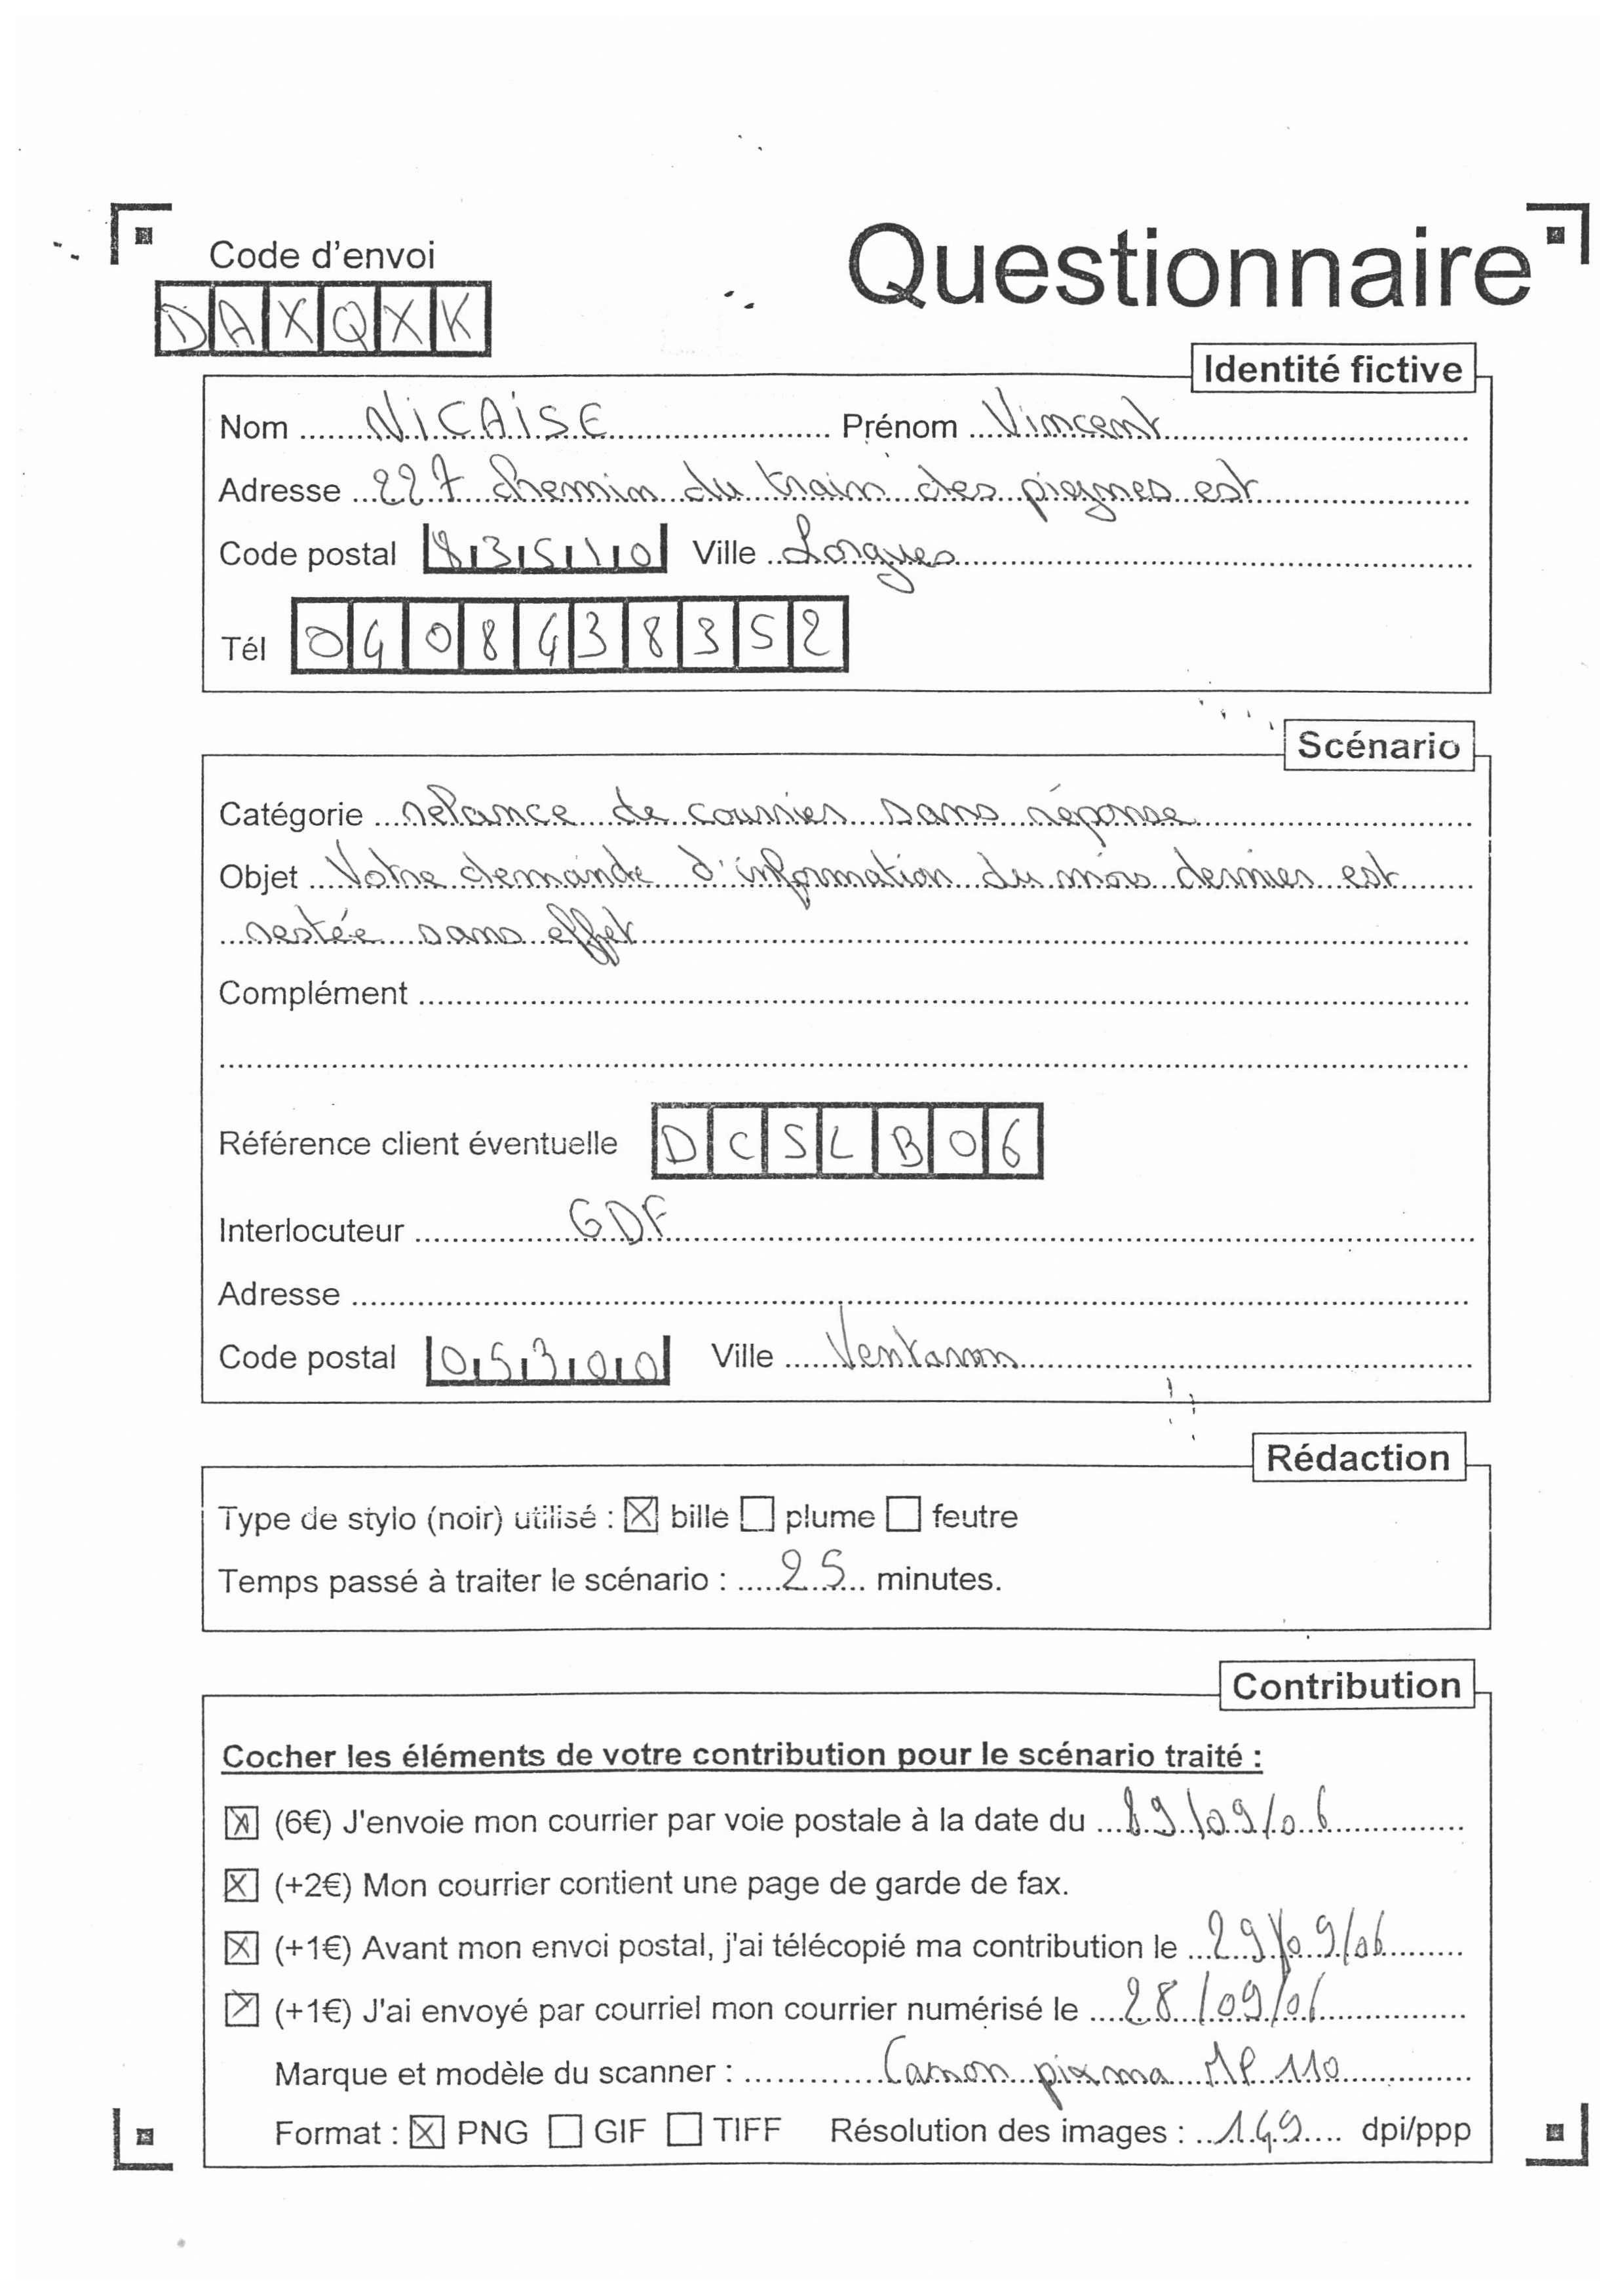 Questionnaire
Code d'envoi
DAXQXK
Identité fictive
Nom NICAISE Prénom Vincent
Adresse 227 chemin du train des pignes est
Code postal 83510 Ville Lorgues
Tél 0408438352
Scénario
Catégorie relance de courrier sans réponse
Objet Votre demande d'information du mois dernier est
restée sans effet
Complément
Référence client éventuelle DCSLB06
Interlocuteur GDF
Adresse
Code postal 05300 Ville Ventavon
Rédaction
Type de stylo (noir) utilisé : ☒ bille ☐ plume ☐ feutre
Temps passé à traiter le scénario : 25 minutes.
Contribution
Cocher les éléments de votre contribution pour le scénario traité :
☒ (6€) J'envoie mon courrier par voie postale à la date du /09/06
☒ (+2€) Mon courrier contient une page de garde de fax.
☒ (+1€) Avant mon envoi postal, j'ai télécopié ma contribution le 29/09/06
☒ (+1€) J'ai envoyé par courriel mon courrier numérisé le 28/09/06
Marque et modèle du scanner : Canon pixma MP 110
Format : ☒ PNG ☐ GIF ☐ TIFF Résolution des images : 149 dpi/ppp